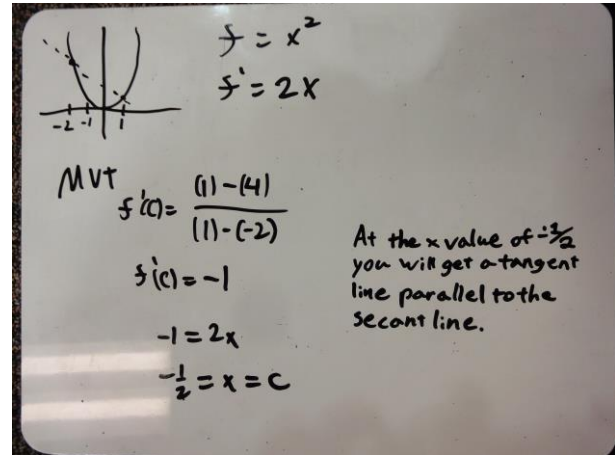 f = x²
f' = 2x
-2 -1 1
MVT
f'(c) = (1) - (4) / (1) - (-2)
f'(c) = -1
-1 = 2x
-1/2 = x = c
At the x value of
you will get a tangent
line parallel to the
secant line.